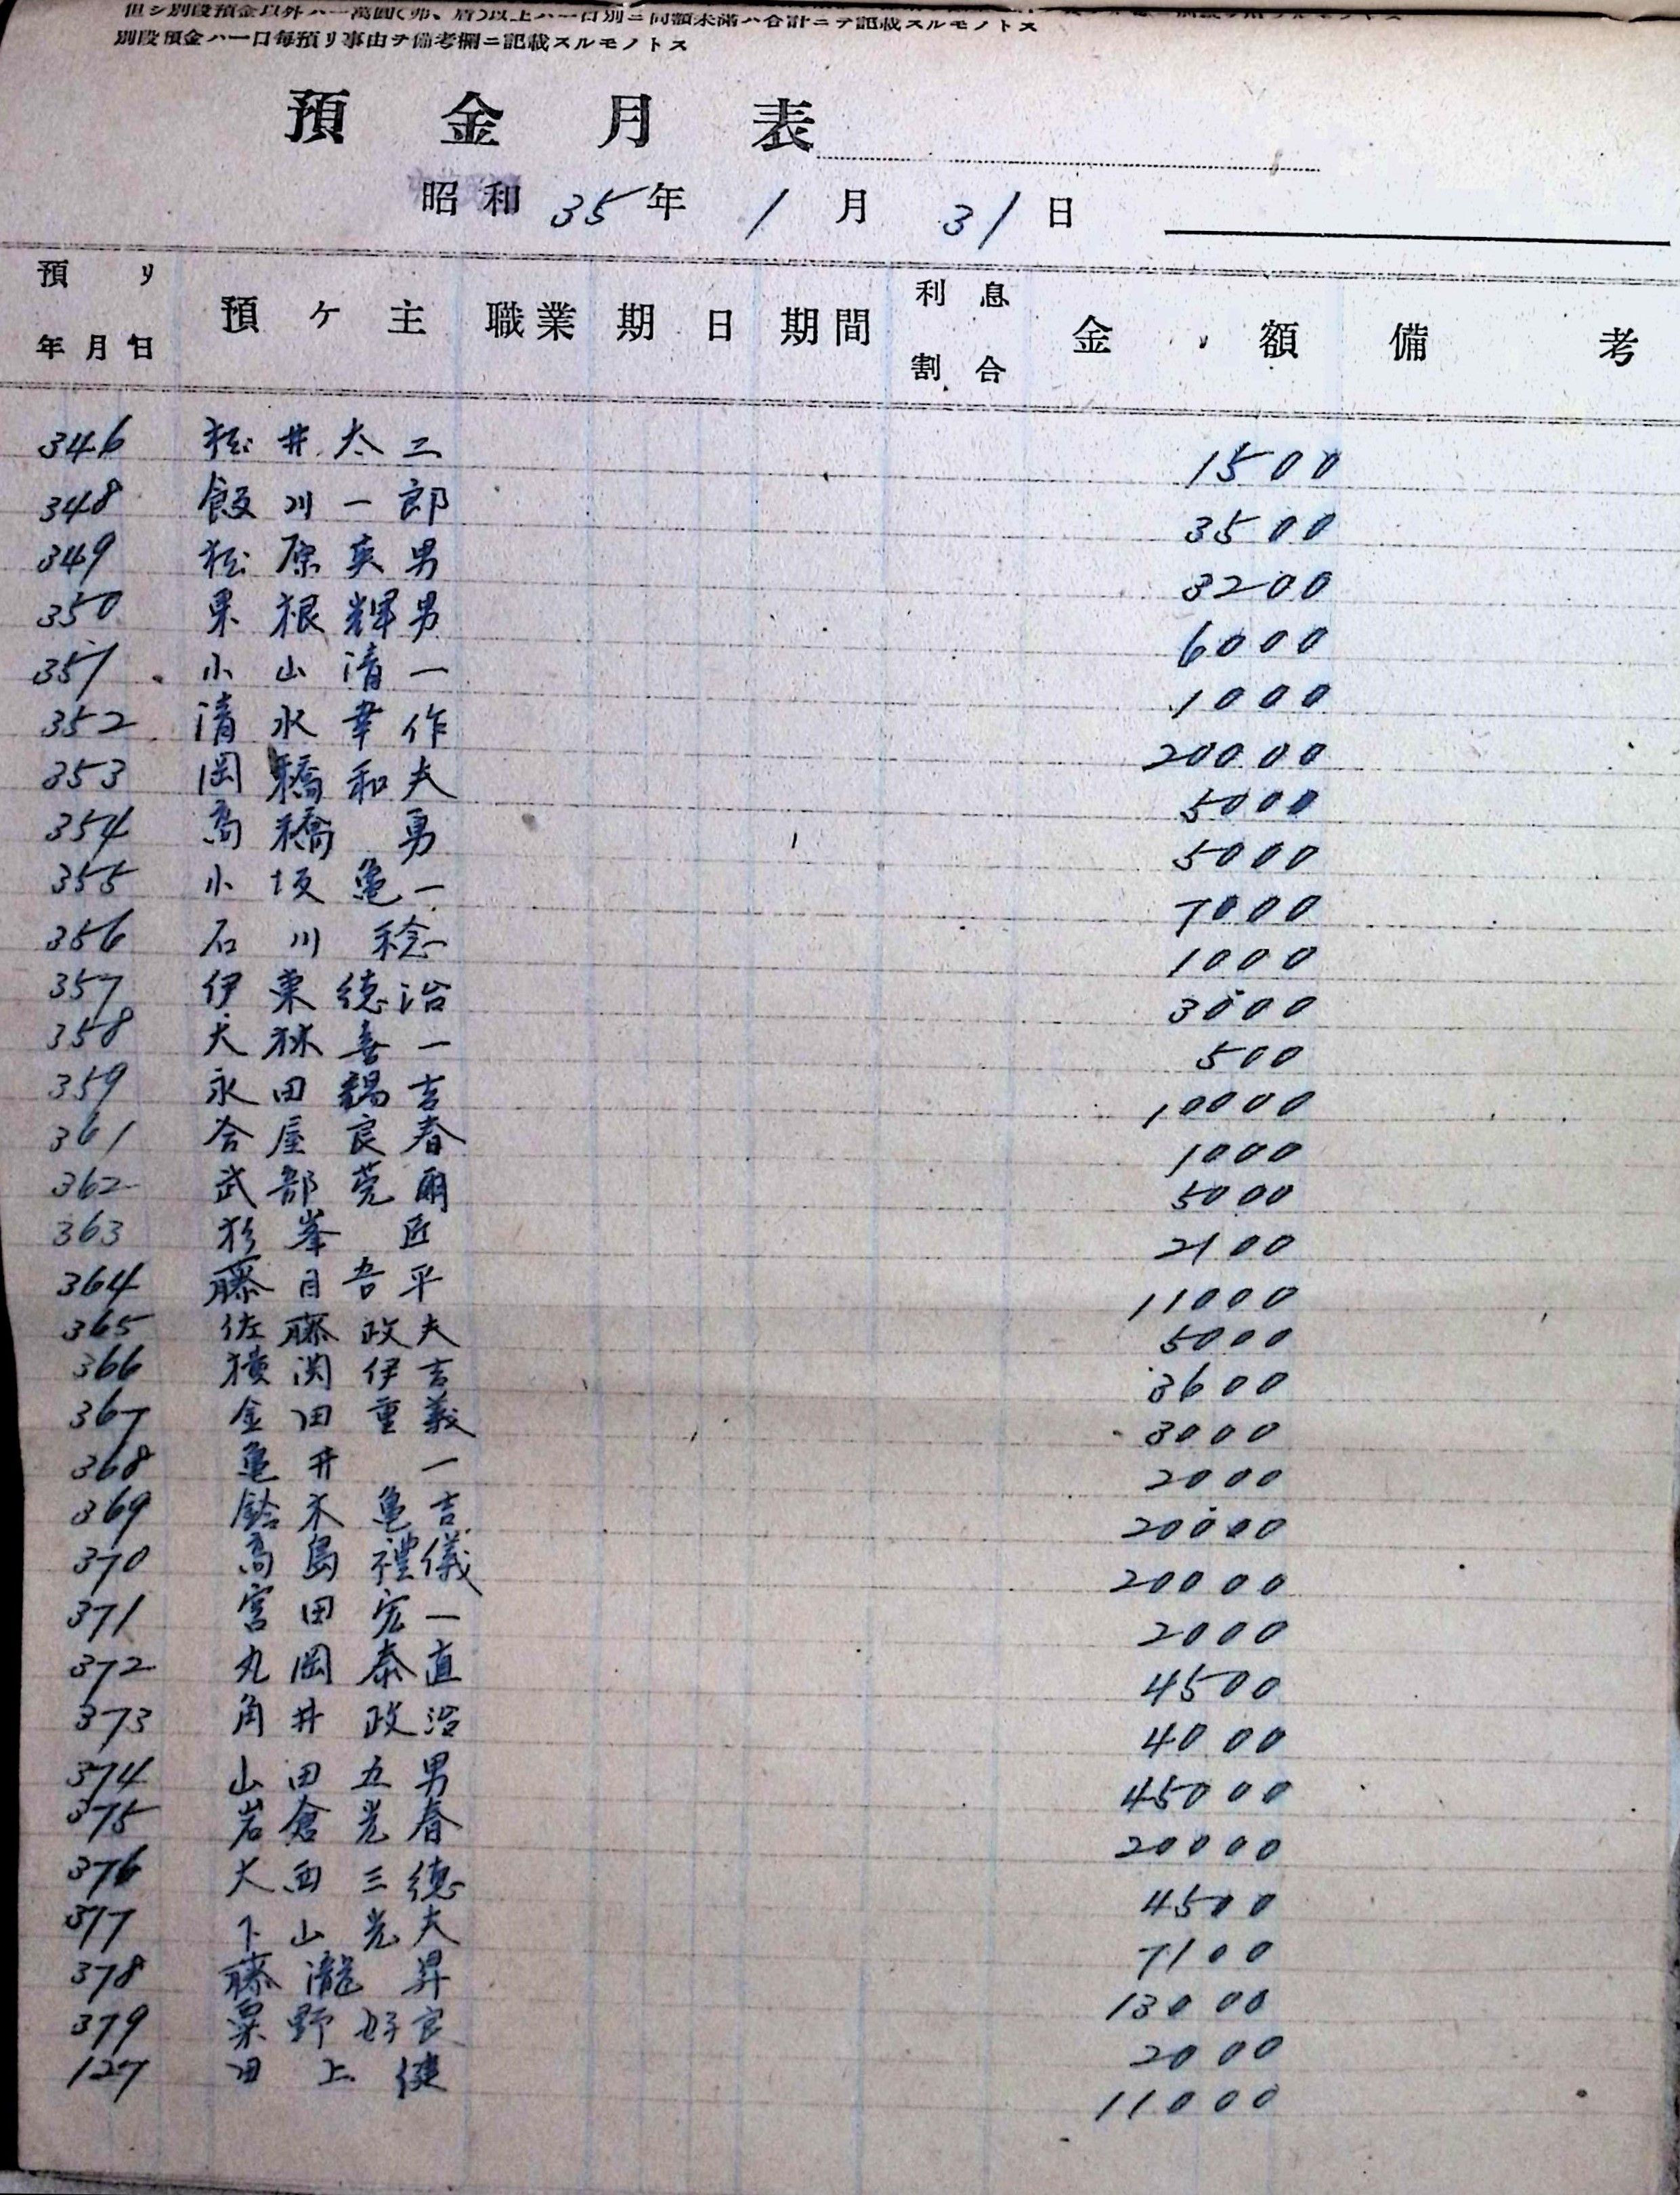 但シ別段預金以外ハ一萬圓(弗、盾)以上ハ一口別ニ同額未滿ハ合計ニテ記載スルモノトス
別段預金ハ一口毎預リ事由ヲ備考欄ニ記載スルモノトス
預金月表
昭和 35年 1月 31日
預リ年月日 預ケ主 職業 期日 期間 利息割合 金額 備考
346 松井太二 1500
348 飯川一郎 3500
349 松原英男 3200
350 東根輝男 6000
351 小山清一 1000
352 清水幸作 20000
353 岡橋和夫 5000
354 高橋勇 5000
355 小坂亀一 7000
356 石川稔 1000
357 伊東徳治 3000
358 大林喜一 500
359 永田鶴吉 10000
361 合屋良春 1000
362 武部莞爾 5000
363 杉峯匠 2100
364 藤目吾平 11000
365 佐藤政夫 5000
366 横関伊吉 3600
367 金田重義 3000
368 亀井一 2000
369 鈴木亀吉 20000
370 高島禮儀 20000
371 宮田宏一 2000
372 丸岡泰直 4500
373 角井政治 4000
374 山田五男 45000
375 岩倉光春 20000
376 大西三徳 4500
377 下山光夫 7100
378 藤瀧昇 13000
379 粟野好良 2000
127 田上健 11000